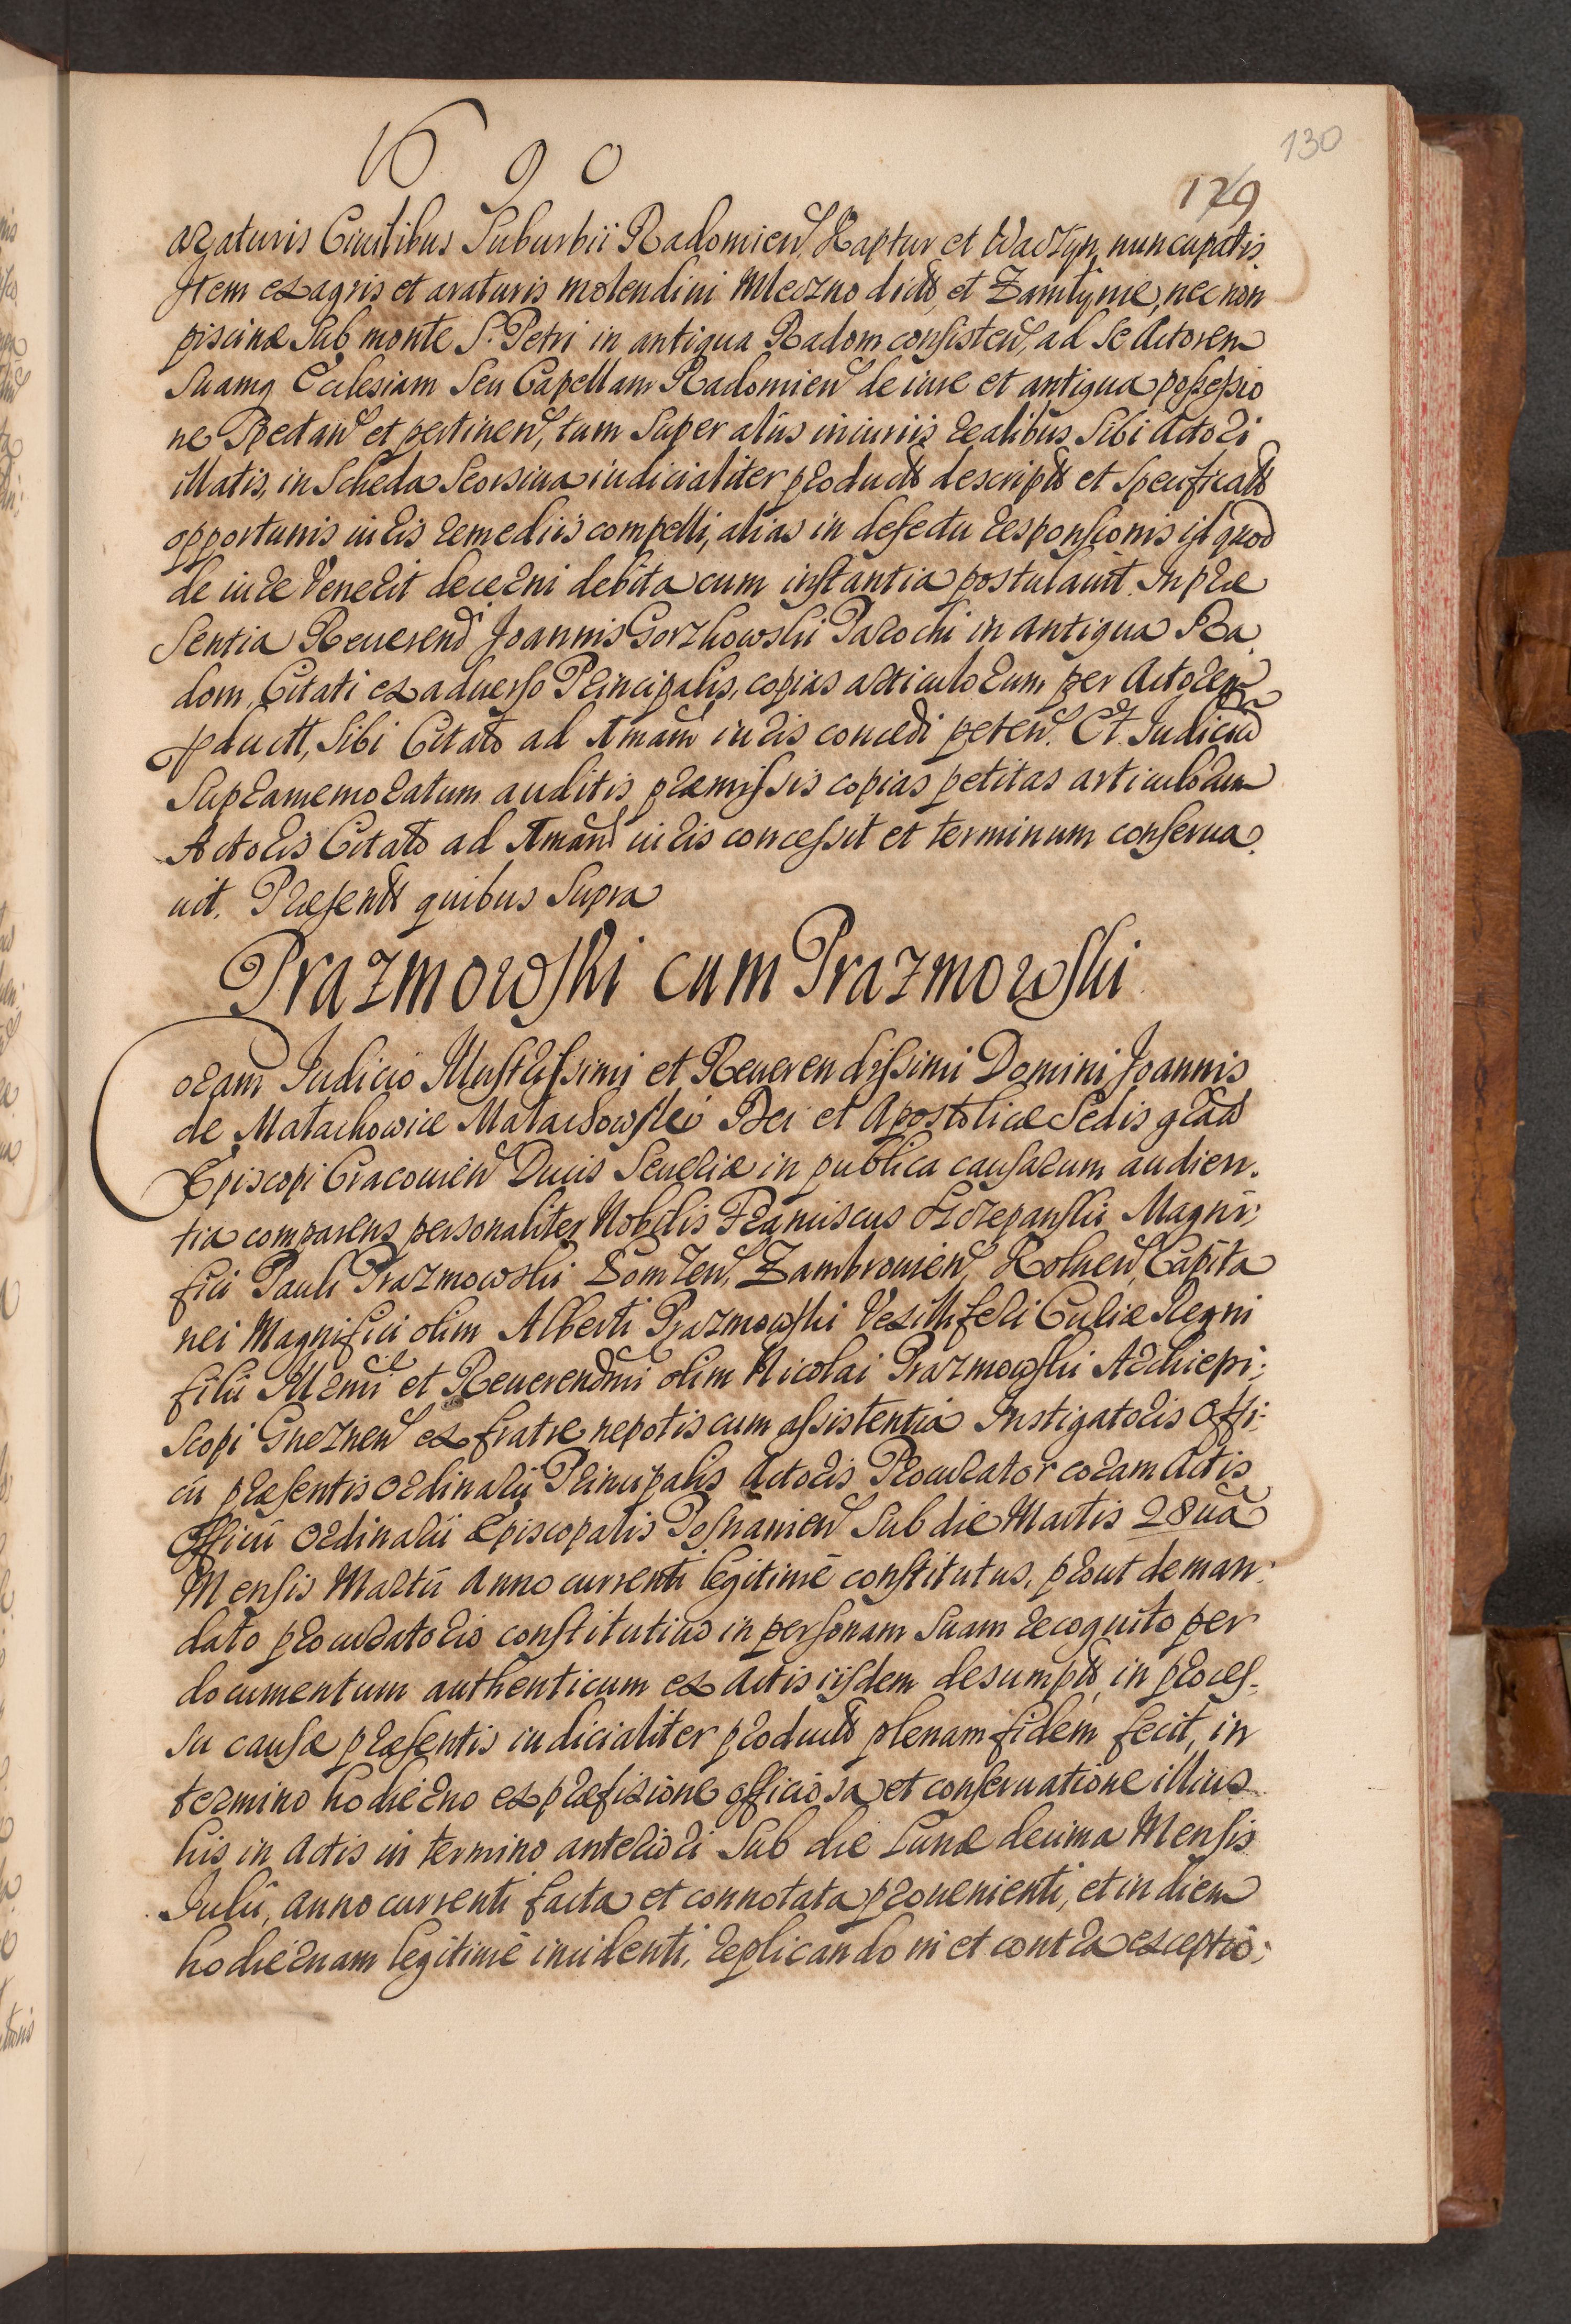 1690
130
129
araturis Ciuilibus Suburbii Radomien. Kaptur et Waczyn nuncupatis.
Item ex agris et araturis molendini Mleczno dict., et Zamłynie, nec non
piscinæ sub monte S. Petri in antiqua Radom consisten., ad se Actorem
suamq. Ecclesiam seu Capellam Radomien. de iure et antiqua possessio
ne spectan. et pertinen., tum super aliis iniuriis realibus sibi Actori
illatis, in scheda seorsiua iudicialiter product. descript. et specificat.
opportunis iuris remediis compelli, alias in defectu responsionis id quod
de iure venerit decerni debita cum instantia postulauit. In præ
sentia Reuerend. Joannis Gorzkowski Parochi in antiqua Ra
dom, Citati ex aduerso Principalis, copias articulorum per Actorem
pduct., sibi Citato ad tmam iuris concedi peten. Et Judicium
supramemoratum auditis præmissis copias petitas articulorum
Actoris Citato ad tmam iuris concessit et terminum conserua
uit. Præsent. quibus supra
Prazmowski cum Prazmowski
Coram Judicio Illustrissimi et Reuerendissimi Domini Joannis
de Małachowice Małachowski Dei et Apostolicæ Sedis gratia
Episcopi Cracouien. Ducis Seueriæ in publica causarum audien.
tia comparens personaliter Nobilis Franciscus Szczepanski Magni:
fici Pauli Prazmowski Lomzen., Zambrouien., Kolnen. Capita
nei Magnifici olim Alberti Prazmowski Vexilliferi Curiæ Regni
filii Illrmi et Reuerendmi olim Nicolai Prazmowski Archiepi:
scopi Gneznen. ex fratre nepotis cum assistentia Instigatoris Offi:
cii præsentis Ordinarii Principalis Actoris Procurator coram Actis
Officii Ordinarii Episcopalis Posnanien. sub die Martis 28ua
Mensis Martii Anno currenti legitimè constitutus, prout de man:
dato procuratorio constitutiuo in personam suam recognito per
documentum authenticum ex Actis iisdem desumpt. in proces-
su causæ præsentis iudicialiter product. plenam fidem fecit, in
termino hodierno ex præfixione officiosa et conseruatione illius
his in Actis in termino anteriori sub die Lunæ decima Mensis
Julii, anno currenti facta et connotata prouenienti, et in diem
hodiernam legitimè incidenti, replicando in et contra exceptio: